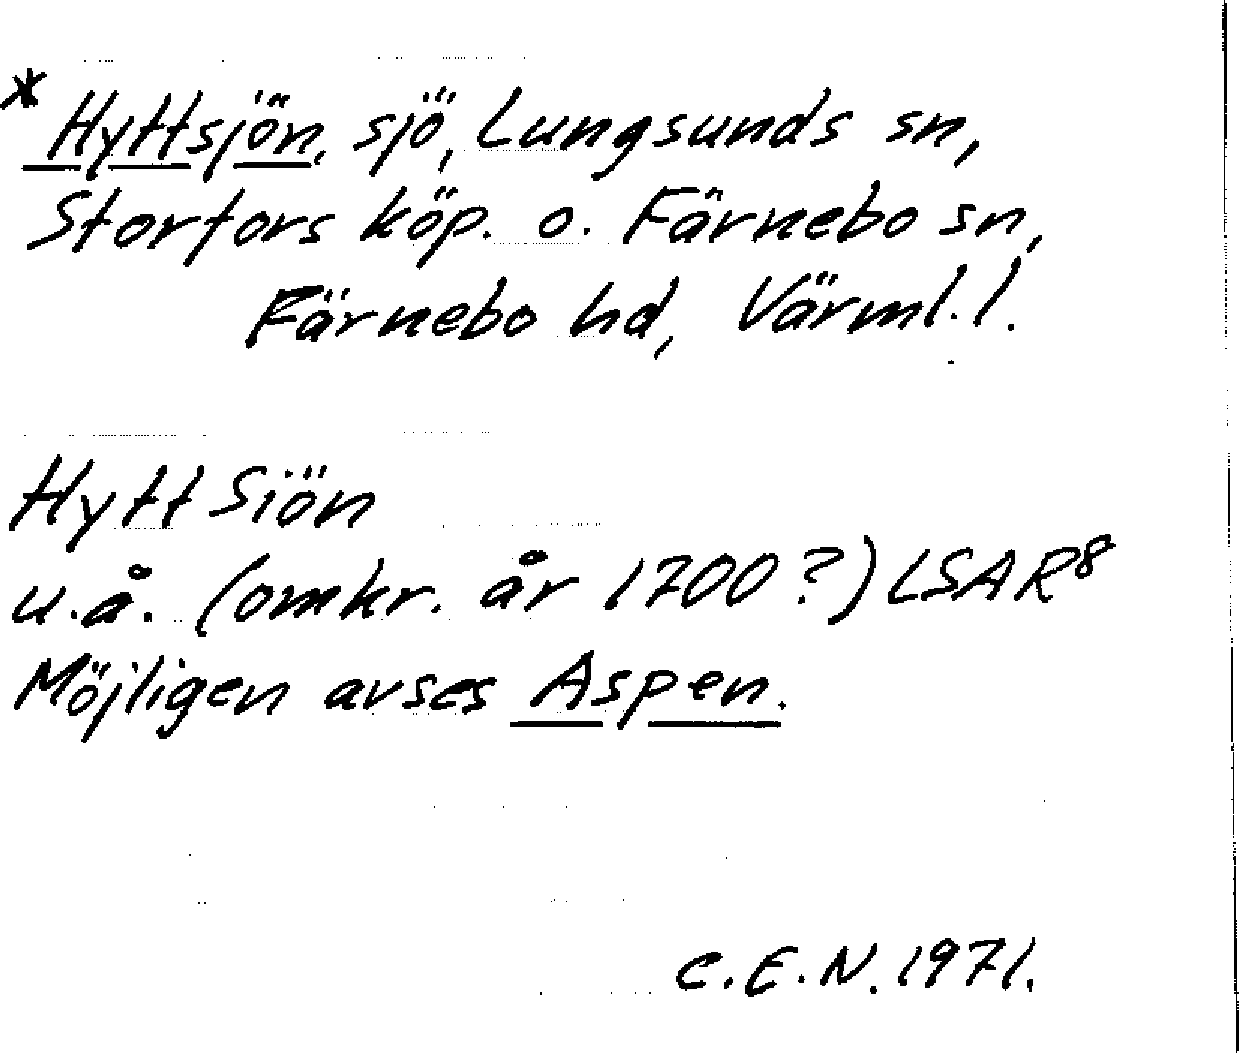 * Hyttsjön, sjö, Lungsunds sn,
Storfors köp. o. Färnebo sn,
Färnebo hd, Värml. l.
Hytt Siön
u.å. (omkr. år 1700?) LSAR⁸
Möjligen avses Aspen.
C.E.N. 1971.